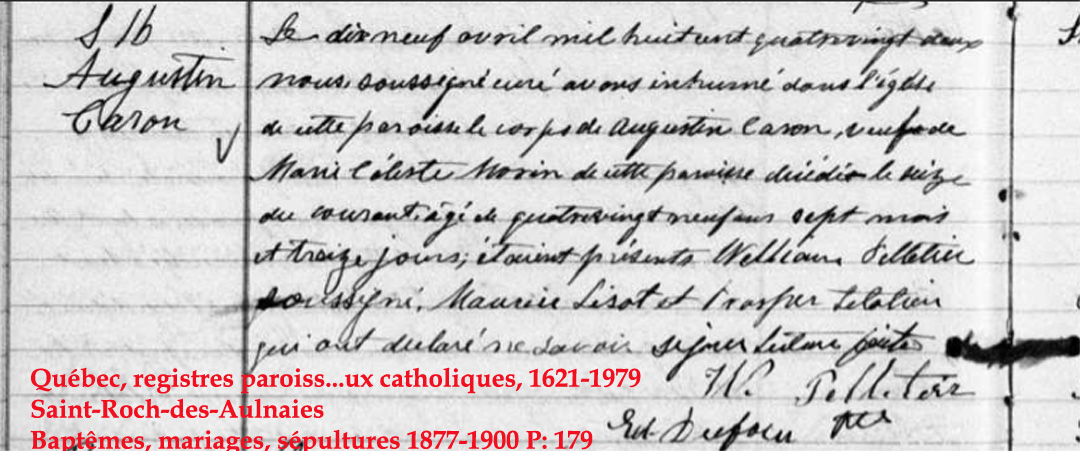 S 16
Augustin
Caron
Le dix neuf avril mil huit cent quatrevingt deux
nous, soussigné curé avons inhumé dans l'église
de cette paroisse le corps de Augustin Caron, veuf de
Marie Céleste Morin de cette paroisse décédé le seize
du courant, âgé de quatrevingt neuf ans sept mois
et treize jours; étaient présents William Pelletier
soussigné, Maurice Lizot et Prosper
qui ont déclaré ne savoir signer lecture faite
W. Pelletier
Ed. Dufour Ptre
Québec, registres paroiss...ux catholiques, 1621-1979
Saint-Roch-des-Aulnaies
Baptêmes, mariages, sépultures 1877-1900 P: 179